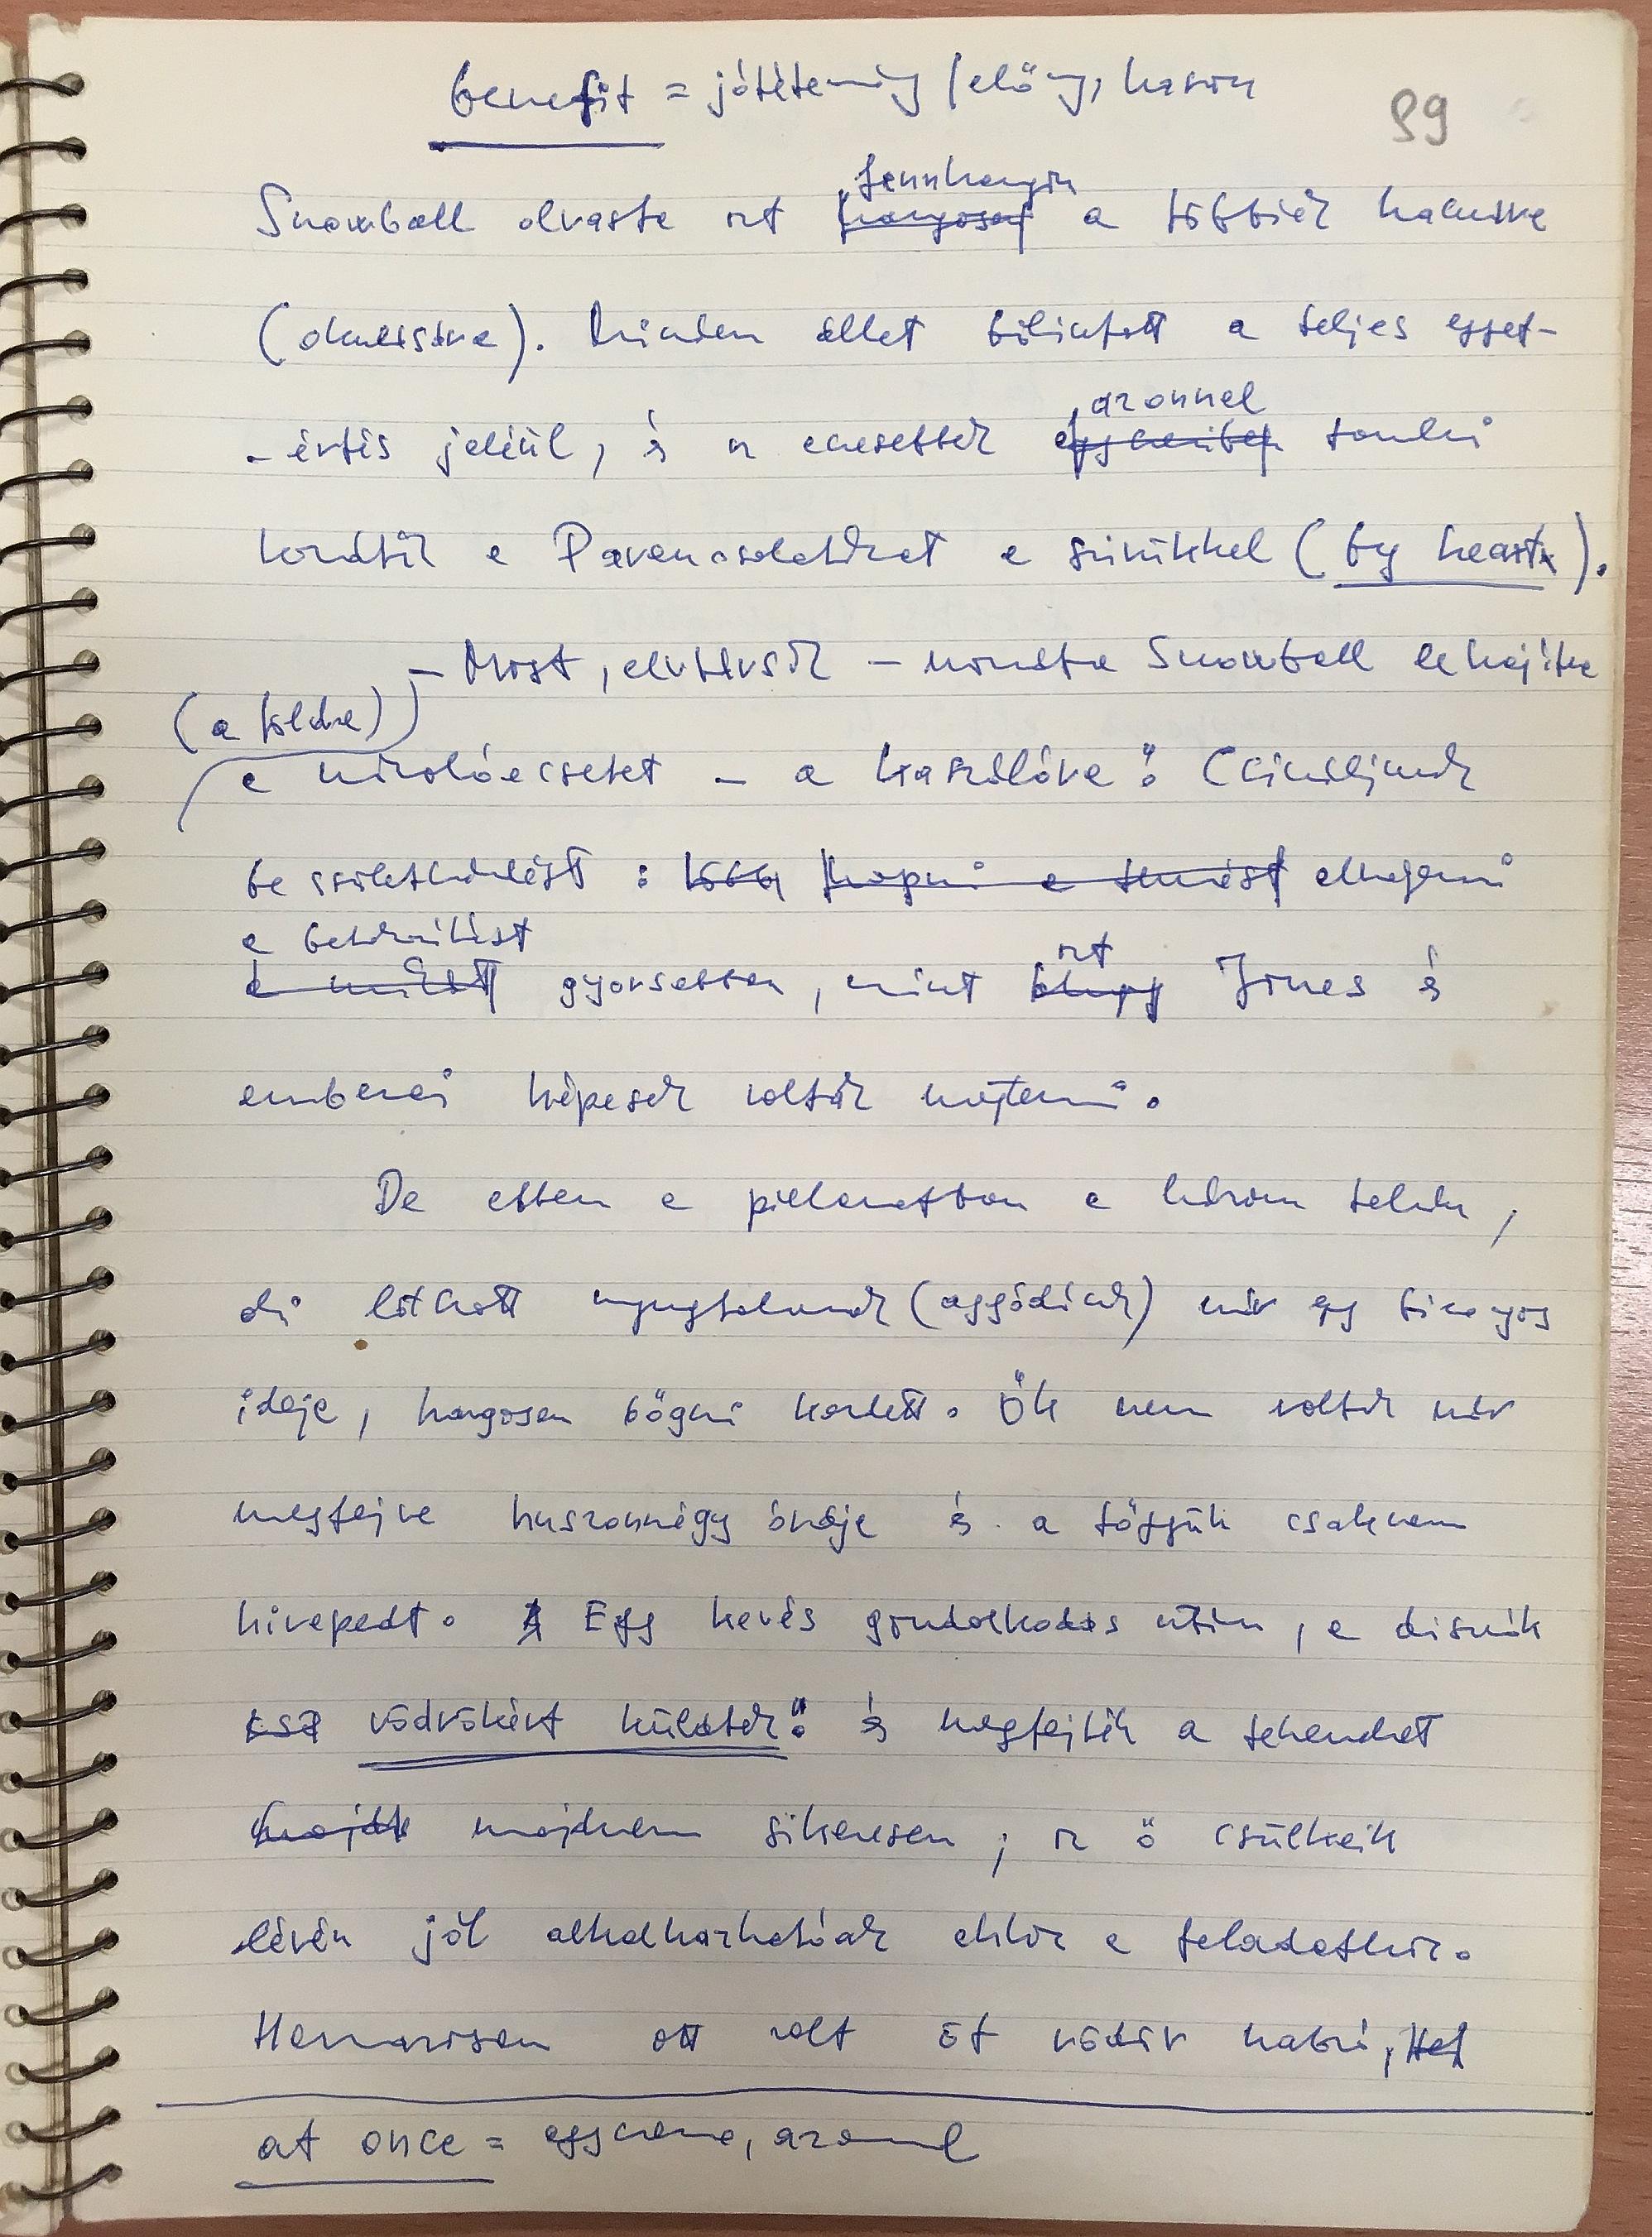 benefit = jótétemény / előny, haszon
89
fennhangon
Snowball olvasta azt hangosan a többiek hasznára
(okulására). Minden állat bólintott a teljes egyet-
azonnal
-értés jeléül, és az okosabbak egyszeriben tanulni
kezdték a Parancsolatokat a szívükkel (by heart).
– Most, elvtársak – mondta Snowball lehajítva
(a földre)
a mázolóecsetet – a kaszálóra! Csináljunk
becsületkérdést : több kapni a termést elhagyni
a betakarítást
a munkát gyorsabban, mint ahogy azt Jones és
emberei képesek voltak megtenni.
De ebben a pillanatban a három tehén,
aki látszott nyugtalannak (aggódónak) már egy bizonyos
ideje, hangosan bőgni kezdett. Ők nem voltak már
megfejve huszonnégy órája és a tőgyük csaknem
kirepedt. A Egy kevés gondolkodás után, a disznók
vödrökért küldtek és megfejték a teheneket
majdnem sikeresen ; az ő csülkeik
lévén jól alkalmazhatóak ehhez a feladathoz.
Hamarosan ott volt öt vödör habzó, Hef
at once = egyszerre, azonnal